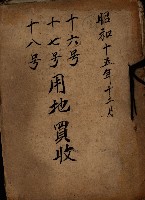 昭和十五年十二月
十六号
十七号用地買收
十八号